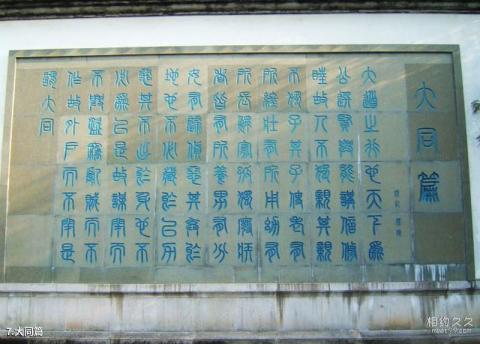 大同篇
大道之行也天下為
公選賢與能講信修
睦故人不獨親其親
不獨子其子使老有
所終壯有所用幼有
所長寡孤獨廢疾
者皆有所養男有分
女有歸貨惡其棄於
地也不必藏於己力
惡其不出於身也不
必為己是故謀閉而
不興盜竊亂賊而不
作故外戶而不閉是
謂大同
7.大同篇
相约久久
meet99.com